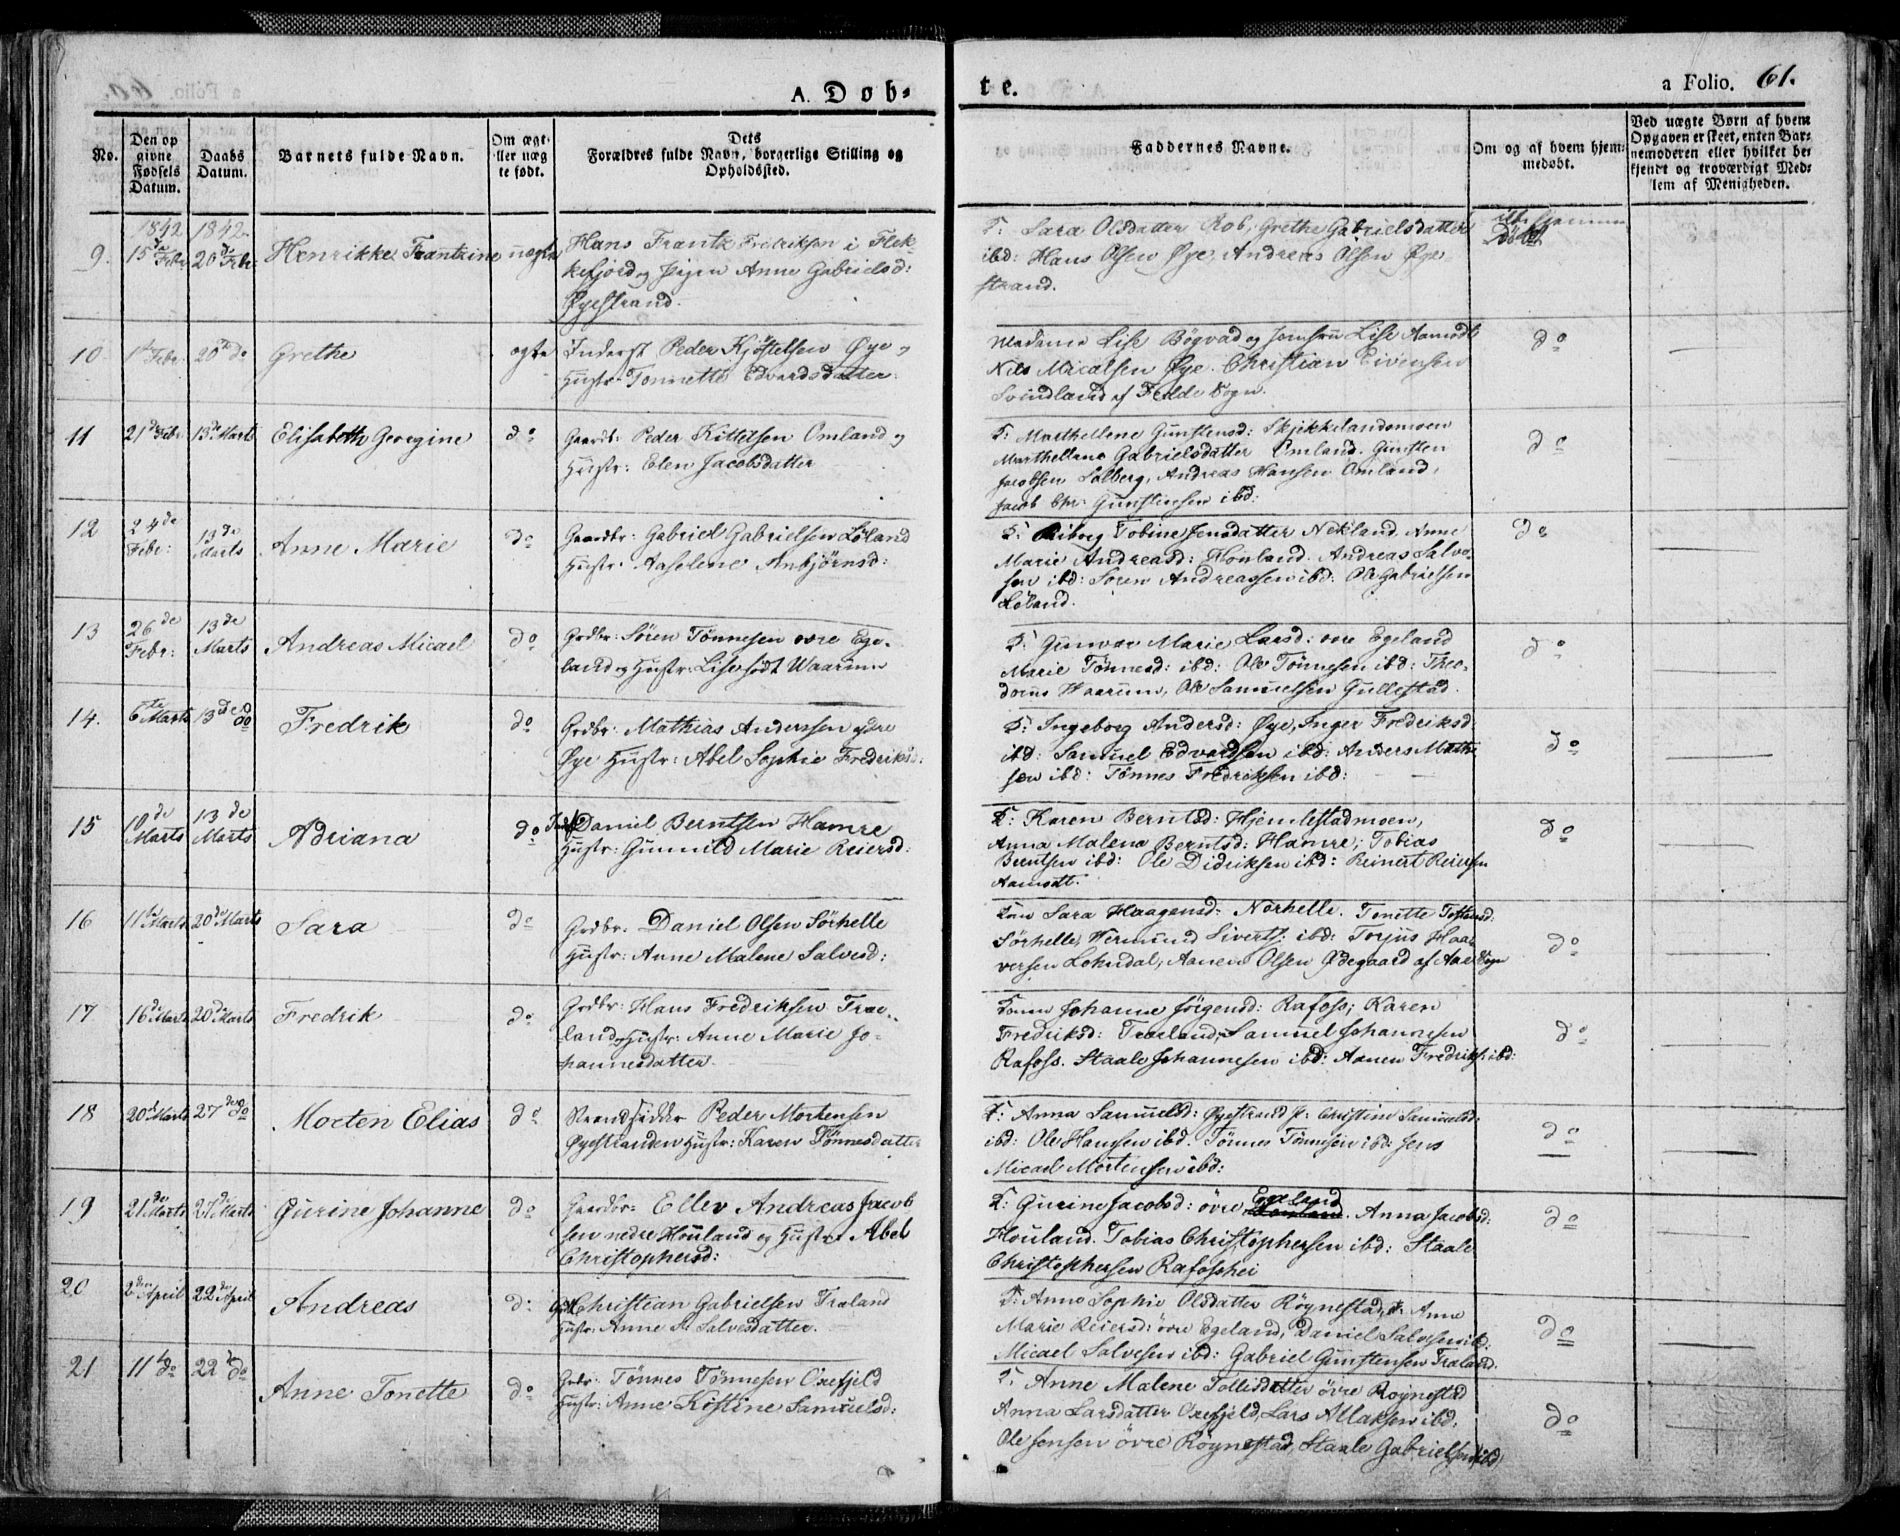 A. Døb-
te.
a Folio. 61.
No.
Den opgivne Fødsels Datum.
Daabs Datum.
Barnets fulde Navn.
Om ægte eller uægte født.
Dets Forældres fulde Navn, borgerlige Stilling og Opholdssted.
Faddernes Navne.
Om og af hvem hjemmedøbt.
Ved uægte Børn af hvem Opgaven er skeet, enten Barnemoderen eller hvilket bekjendt og troværdigt Medlem af Menigheden.
1842 1842
9. 15de Febr 20de Febr: Henrikke Frantzine uægte
Hans Frantz Fredriksen i Flek-
kefjord og Pigen Anne Gabrielsd:
Øyestrand.
F: Sara Olsdatter Rob, Grethe Gabrielsdatter
ibd: Hans Olsen Øye, Andreas Olsen Øye
strand.
Døbt
10 1ste Febr 20de do Grethe ægte
Inderst Peder Kjøstelsen Øye og
Hustr: Tonnette Edvardsdatter.
Madame Lise Bøgvad og Jomfru Lise Aamodt
Nils Micalsen Øye. Christian Eivensen
Svindland af Fede Sogn.
do
11 21de Febr 13de Marts Elisabeth Georgine do
Gaardb: Peder Kittelsen Omland og
Hustr: Elen Jacobsdatter
F: Marthellene Gunstensd: Skjekkelandsmoen
Marthellena Gabrielsdatter Omland. Gunsten
Jacobsen Solberg, Andreas Hansen Omland,
Jacob Chr. Gunstensen ibd:
do
12 24de Febr: 13de Marts Anne Marie do
Gaardbr: Gabriel Gabrielsen Løland
Hustr. Aaselene Anbjørnsd:
F: Tobine Jensdatter Nekland. Anne
Marie Andreasd: Houland. Andreas Salve-
sen ibd: Søren Andreassen ibd: Ole Gabrielsen
Løland.
do
13 26de Febr: 13de Marts Andreas Micael do
Grdbr: Søren Tønnesen øvre Ege-
land og Hustr: Lise født Waarum
F: Gunvor Marie Larsd: øvre Egeland
Marie Tønnesd: ibd: Ole Tønnesen ibd: Theo-
dorus Waarum, Ole Samuelsen Gullestad.
do
14. 6te Marts 13de do Fredrik do
Grdbr: Mathias Anderssen ydre
Øye Hustr: Abel Sophie Fredriksd:
F: Ingeborg Andersd: Øye, Inger Fredriksd
ibd: Samuel Edvardsen ibd: Anders Mathi
sen ibd: Tønnes Fredriksen ibd:
do
15 10de Marts 13de Marts Adriana do
Daniel Berntsen Hamre
Hustr: Gunnild Marie Reiersd:
F: Karen Berntsd: Hjemlestadmoen,
Anna Malena Berntsd: Hamre; Tobias
Berntsen ibd: Ole Didriksen ibd: Reinert Reiersen
Aamodt.
do
16 11de Marts 20de Marts Sara do
Grdbr. Daniel Olsen Sørhelle
Hustr: Anne Malene Salvesd:
Sara Haagensd: Nørhelle. Tonette Tostensd:
Sørhelle, Hermund Siverts: ibd: Torjus Haa-
versen Lohndal, Aanen Olsen Ødegaard af Aae Sogn
do
17 16de Marts 20de Marts Fredrik do
Grdbr: Hans Fredriksen Træ-
land og Hustr: Anne Marie Jo-
hannesdatter
Johanne Jörgensd: Rafoss; Karen
Fredriksd: Træland, Samuel Johannesen
Rafoss. Staale Johannesen ibd: Aanen Fredriks: ibd:
do
18 20de Marts 27de do Morten Elias do
Strandsidder Peder Mortensen
Øyestranden Hustr: Karen Tønnesdatter
F: Anna Samuelsd: Øyestrand J: Christine Samuelsd:
ibd: Ole Hansen ibd. Tønnes Tønnesen ibd: Jens
Micael Mortensen ibd:
do
19 21de Marts 27de Marts Gurine Johanne do
Gaardbr: Ellev Andreas Jacob
sen nedre Houland og Hustr: Abel
Christophersd:
F: Gurine Jacobsd: øvre Egeland. Anna Jacobsd:
Houland. Tobias Christophersen ibd: Staale
Christophersen Rafosshei
do
20 2den April 22de April Andreas d:
Christian Gabrielsen Traland
Hustr: Anne S. Salvesdatter.
F: Anne Sophie Olsdatter Røynestad, Anne
Marie Reiersd: øvre Egeland, Daniel Salvesen ibd:
Micael Salvesen ibd: Gabriel Gunstensen Traland.
do
21 11te do 22de do Anne Tonette do
Grdbr: Tønnes Tønnesen Oxefjeld
Hustr: Anne Kistine Samuelsd:
F: Anne Malene Tollisdatter øvre Røynestad
Anna Larsdatter Oxefjeld, Lars Atlaksen ibd:
Ole Jensen øvre Røynestad, Staale Gabrielsen ibd
do